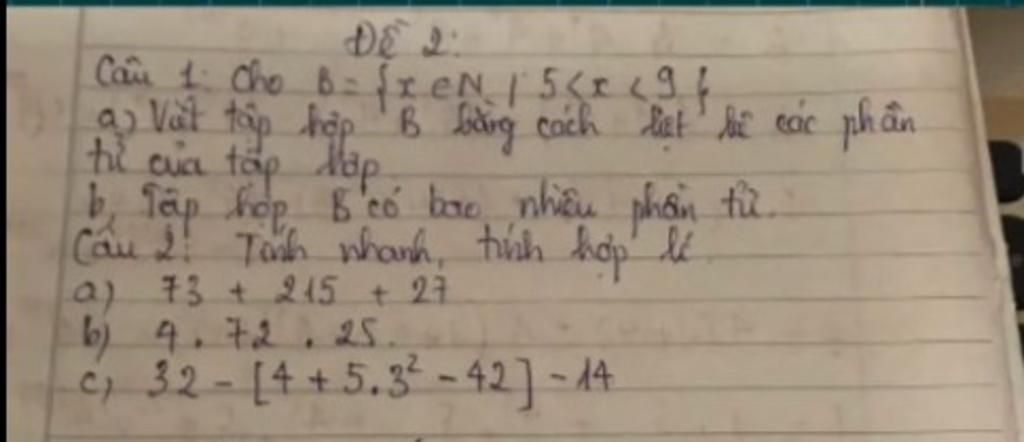 Đề 2:
Câu 1: Cho B = {x ∈ N | 5 < x < 9}
a) Viết tập hợp B bằng cách liệt kê các phần
tử của tập hợp
b, Tập hợp B có bao nhiêu phần tử.
Câu 2: Tính nhanh, tính hợp lí
a) 73 + 215 + 27
b) 4 . 72 . 25.
c, 32 - [4 + 5.3² - 42] - 14